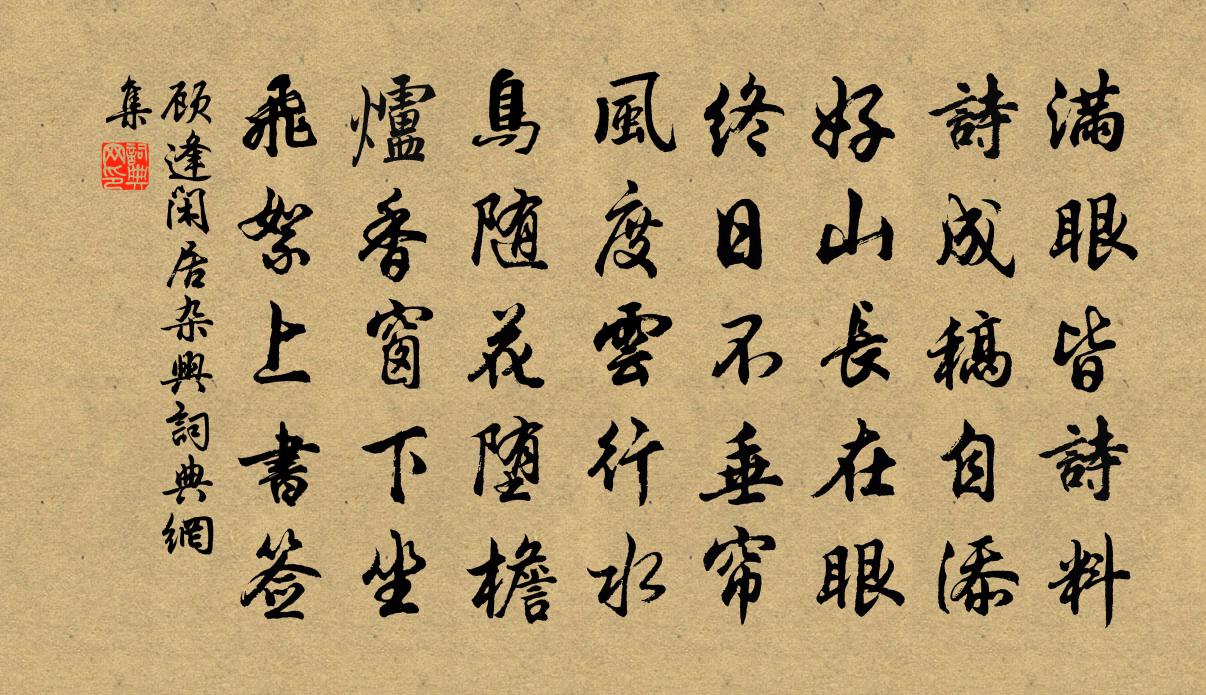 满眼皆詩料
詩成稿自添
好山長在眼
終日不垂帘
風度雲行水
鳥随花堕檐
爐香窗下坐
飛絮上書签
顾逢闲居杂興詞典網
集
詞典
网印